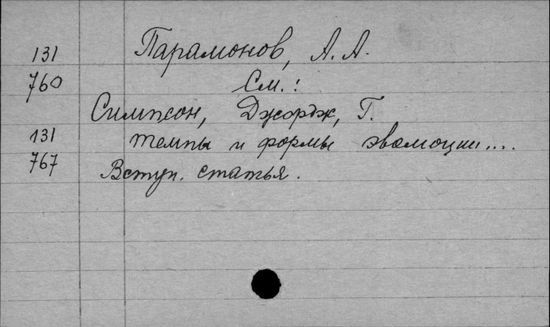 131 Парамонов, А. А.
760 См.:
Симпсон, Джордж, Г.
131 темпы и формы эволюции....
767 Вступ. статья.